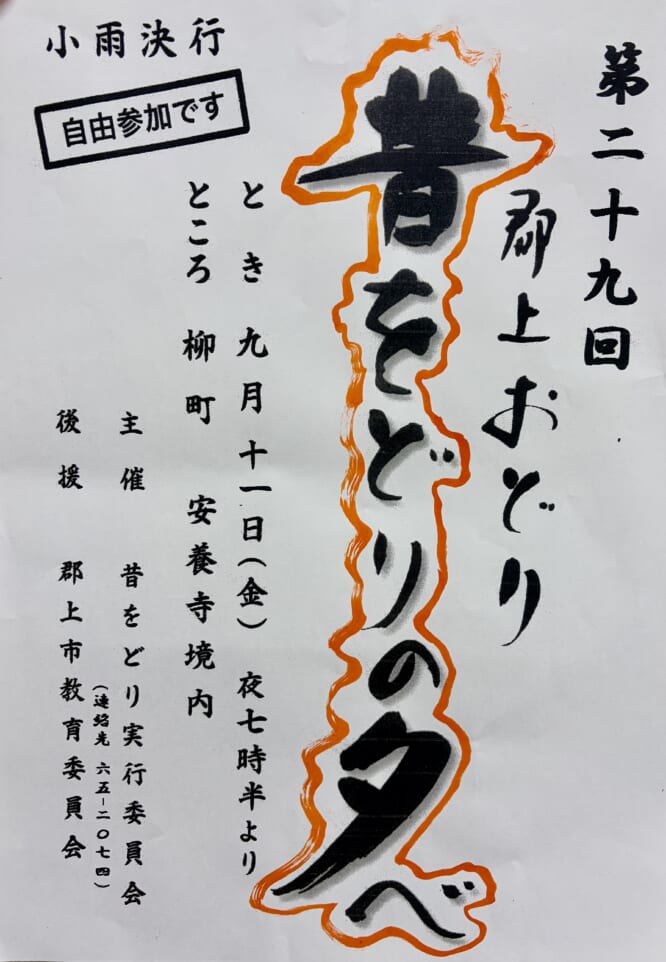 第二十九回
郡上おどり
昔をどりの夕べ
とき 九月十一日(金) 夜七時半より
ところ 柳町 安養寺境内
小雨決行
自由参加です
主催 昔をどり実行委員会
(連絡先 六五-二〇七四)
後援 郡上市教育委員会